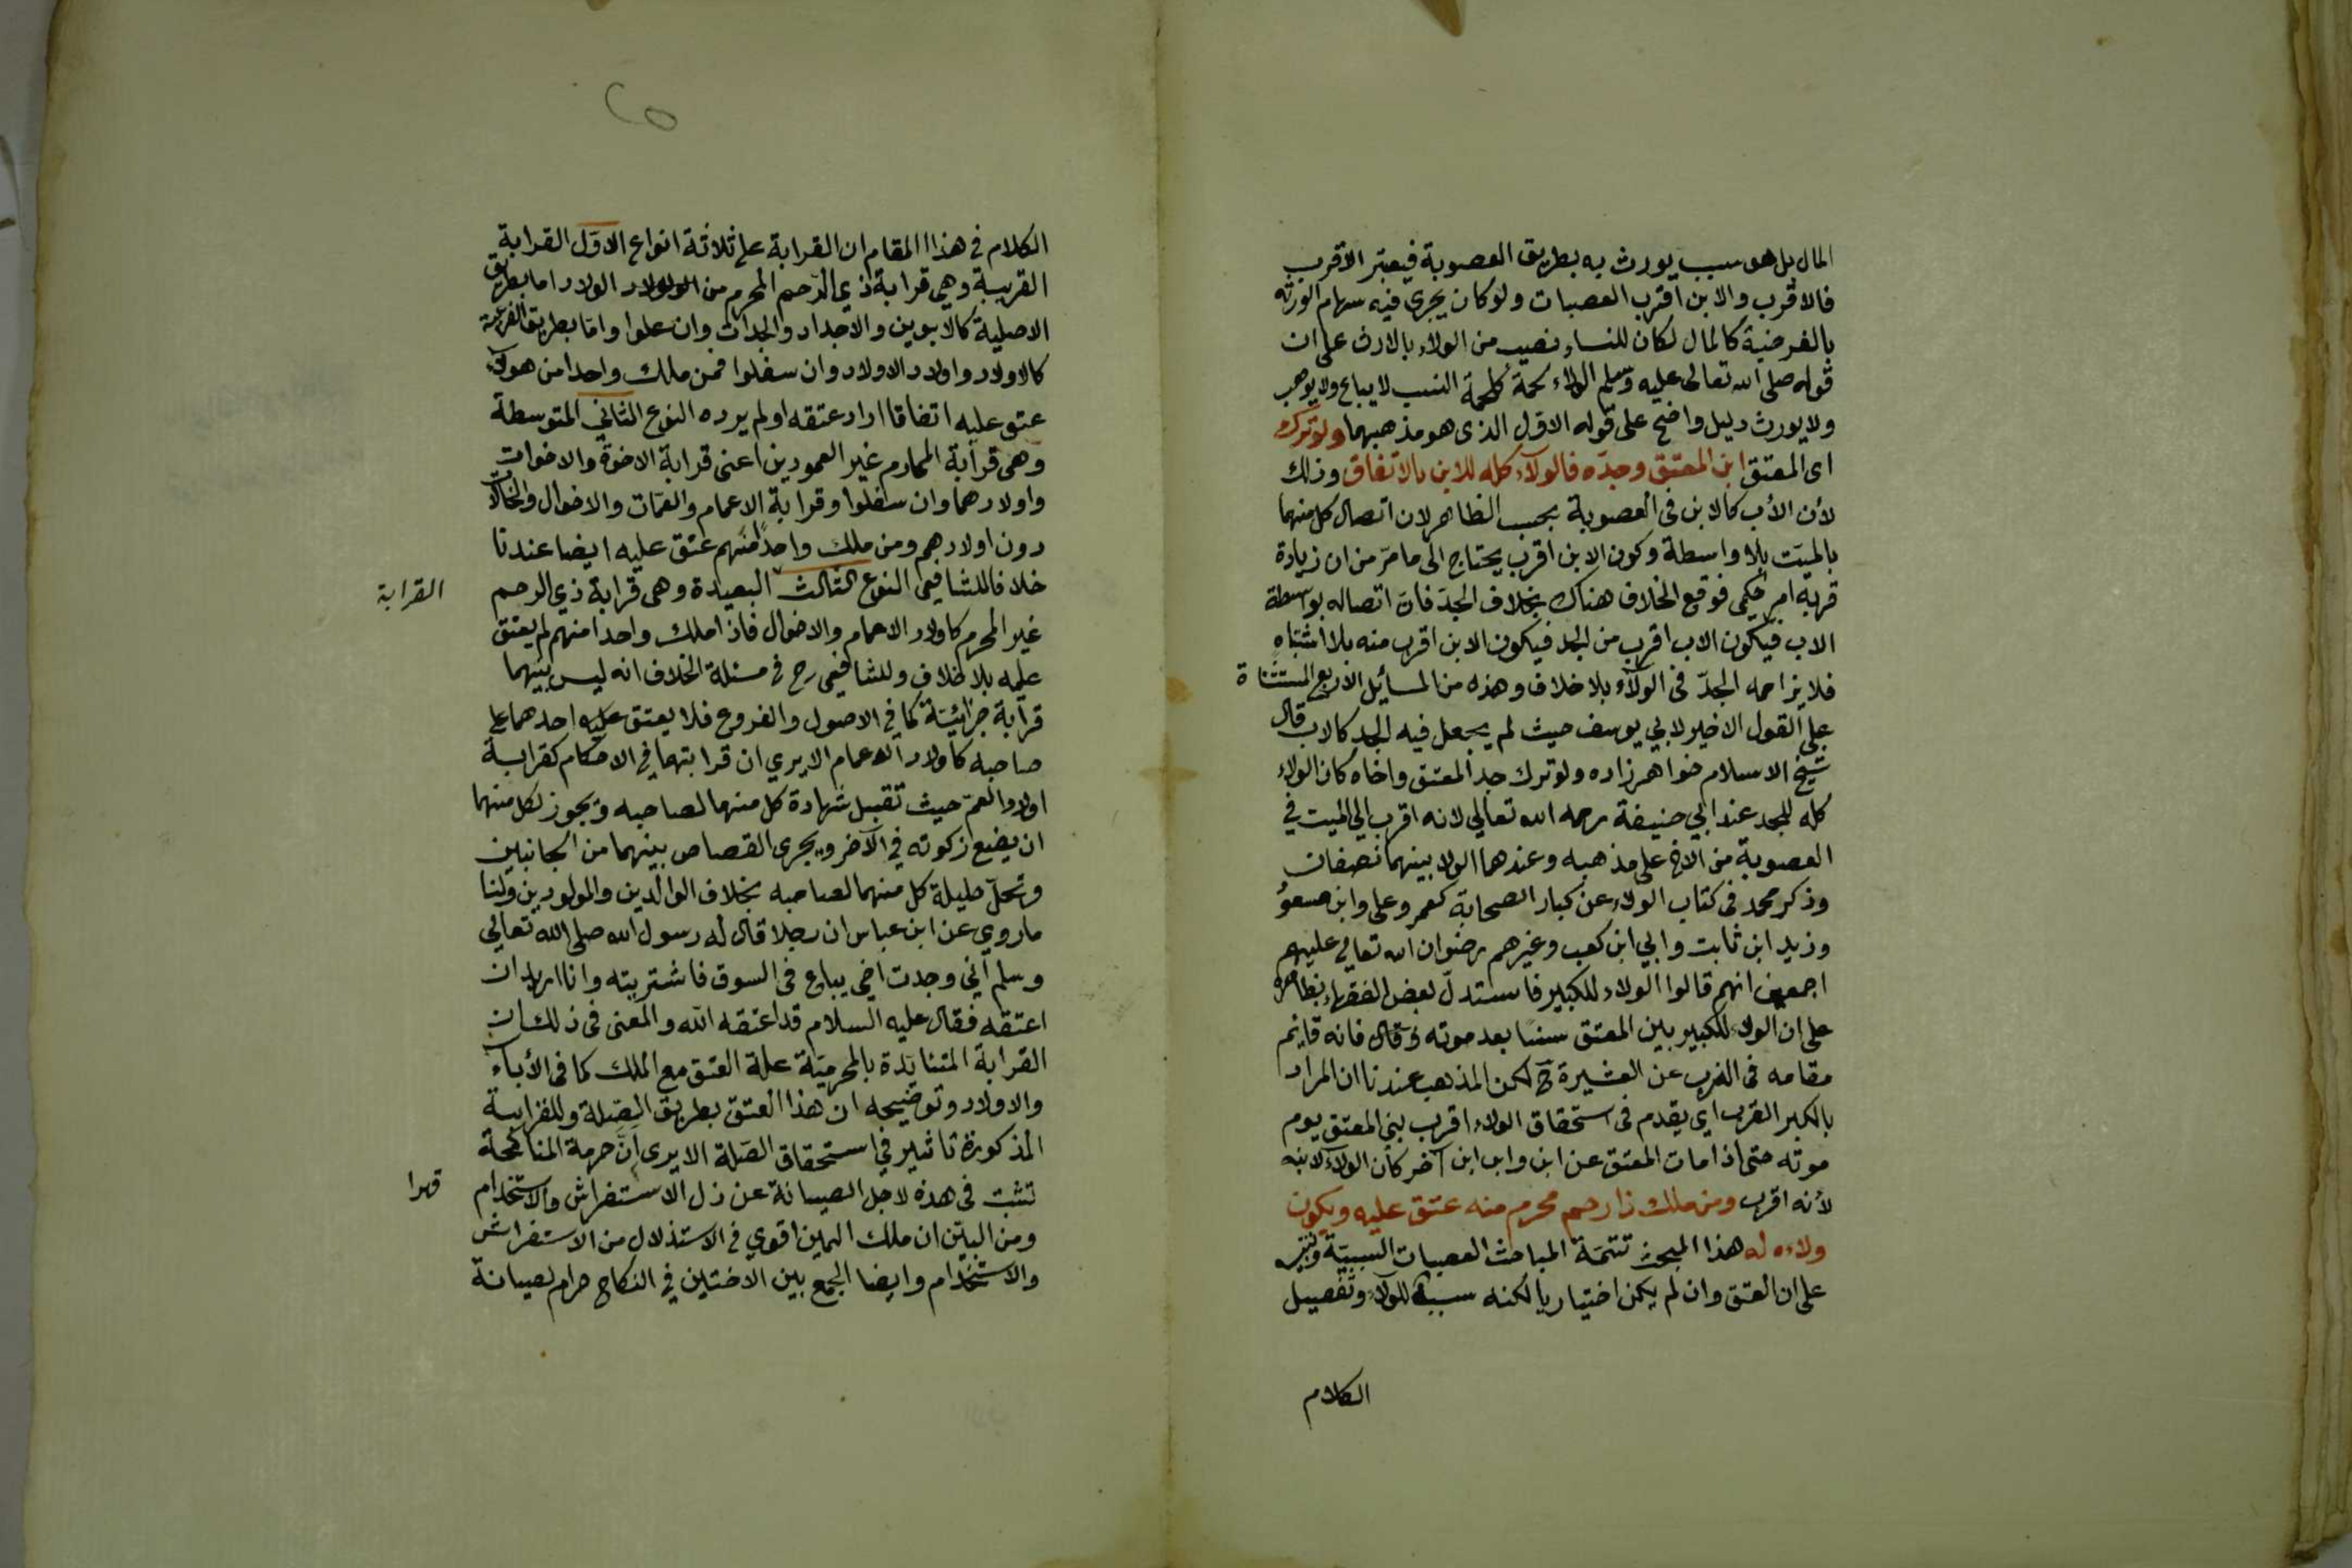 المال بل هو سبب يورث به بطريق العصوبة فيعتبر الاقرب
فالاقرب والابن اقرب العصبات ولو كان يجرى فيه سهام الورثه
بالفرضية كالمال لكان للنساء نصيب من الولاء بالارث على ان
قوله صلى الله تعالى عليه وسلم الولاء لحمة كلحمة النسب لا يباع ولا يوهب
ولا يورث دليل واضح على قوله الاول الذى هو مذهبهما ولو ترك
اى المعتق ابن المعتق وجدّه فالولاء كله للابن بالاتفاق وذلك
لأن الأب كالابن فى العصوبة بحسب الظاهر لان اتصال كل منهما
بالميت بلا واسطة وكون الابن اقرب يحتاج الى ما مرّ من ان زيادة
قربه امر حكمى فوقع الخلاف هناك بخلاف الجدّ فان اتصاله بواسطة
الاب فيكون الاب اقرب من الجد فيكون الابن اقرب منه بلا اشتباه
فلا يزاحمه الجدّ فى الولاء بلا خلاف وهذه من المسائل الاربع المستثناة
على القول الاخير لابي يوسف حيث لم يجعل فيه الجد كالاب قال
شيخ الاسلام خواهر زاده ولو ترك جد المعتق واخاه كان الولاء
كله للجد عند ابي حنيفة رحمه الله تعالي لانه اقرب الي الميت في
العصوبة من الاخ على مذهبه وعندهما الولا بينهما نصفان
وذكر محمد فى كتاب الولاء عن كبار الصحابة كعمر وعلى وابن مسعود
وزيد ابن ثابت وابي ابن كعب وغيرهم رضوان الله تعالي عليهم
اجمعين انهم قالوا الولاء للكبير فاستدلّ بعض الفقهاء بظاهره
على ان الولاء للكبير بين المعتق سنا بعد موته وقال فانه قائم
مقامه فى الذب عن العشيرة ح لكن المذهب عندنا ان المراد
بالكبر القرب اي يقدم فى استحقاق الولاء اقرب بني المعتق يوم
موته حتى اذا مات المعتق عن ابن وابن ابن آخر كان الولاء لابنه
لأنه اقرب ومن ملك ذا رحم محرم منه عتق عليه ويكون
ولاءه له هذا المبحث تتمة المباحث العصبات السببية وتنبيه
على ان العتق وان لم يكن اختياريا لكنه سببا للولاء وتفصيل
الكلام
الكلام في هذا المقام ان القرابة على ثلاثة انواع الاوّل القرابة
القريبة وهي قرابة ذي الرحم المحرم من الولاد اما بطريق
الاصلية كالابوين والاجداد والجدات وان علوا واما بطريق الفرعية
كالاولاد واولاد الاولاد وان سفلوا فمن ملك واحدا من هولاء
عتق عليه اتفاقا اراد عتقه او لم يرده النوع الثاني المتوسطة
وهى قرابة المحارم غير العمودين اعنى قرابة الاخوة والاخوات
واولادهما وان سفلوا وقرابة الاعمام والعمّات والاخوال والخالات
دون اولادهم ومن ملك واحدًا منهم عتق عليه ايضا عندنا
خلافا للشافعى النوع الثالث البعيدة وهى قرابة ذي الرحم
القرابة
غير المحرم كاولاد الاعمام والاخوال فاذا ملك واحدا منهم لم يعتق
عليه بلا خلاف وللشافعى رح في مسئلة الخلاف انه ليس بينهما
قرابة جزائيّة كما في الاصول والفروع فلا يعتق عليه احدهما على
صاحبه كاولاد الاعمام الا يري ان قرابتهما في الاحكام كقرابة
اولاد العم حيث تقبل شهادة كل منهما لصاحبه ويجوز لكل منهما
ان يضع زكوته في الآخر ويجرى القصاص بينهما من الجانبين
وتحلّ حليلة كل منهما لصاحبه بخلاف الوالدين والمولودين ولنا
ما روي عن ابن عباس ان رجلا قال له رسول الله صلى الله تعالي
وسلم اني وجدت اخي يباع فى السوق فاشتريته وانا اريد ان
اعتقه فقال عليه السلام قد اعتقه الله والمعنى فى ذلك ان
القرابة المتنايدة بالمحرميّة علة العتق مع الملك كما فى الأباء
والاولاد وتوضيحه ان هذا العتق بطريق الصّلة وللقرابة
المذكورة تاثير في استحقاق الصّلة الا يرى انّ حرمة المناكحة
تثبت فى هذه لاجل الصيانة عن ذل الاستفراش والاستخدام
قهرا
ومن البيّن ان ملك اليمين اقوي في الاستذلال من الاستفراش
والاستخدام وايضا الجمع بين الاختين في النكاح حرام لصيانة